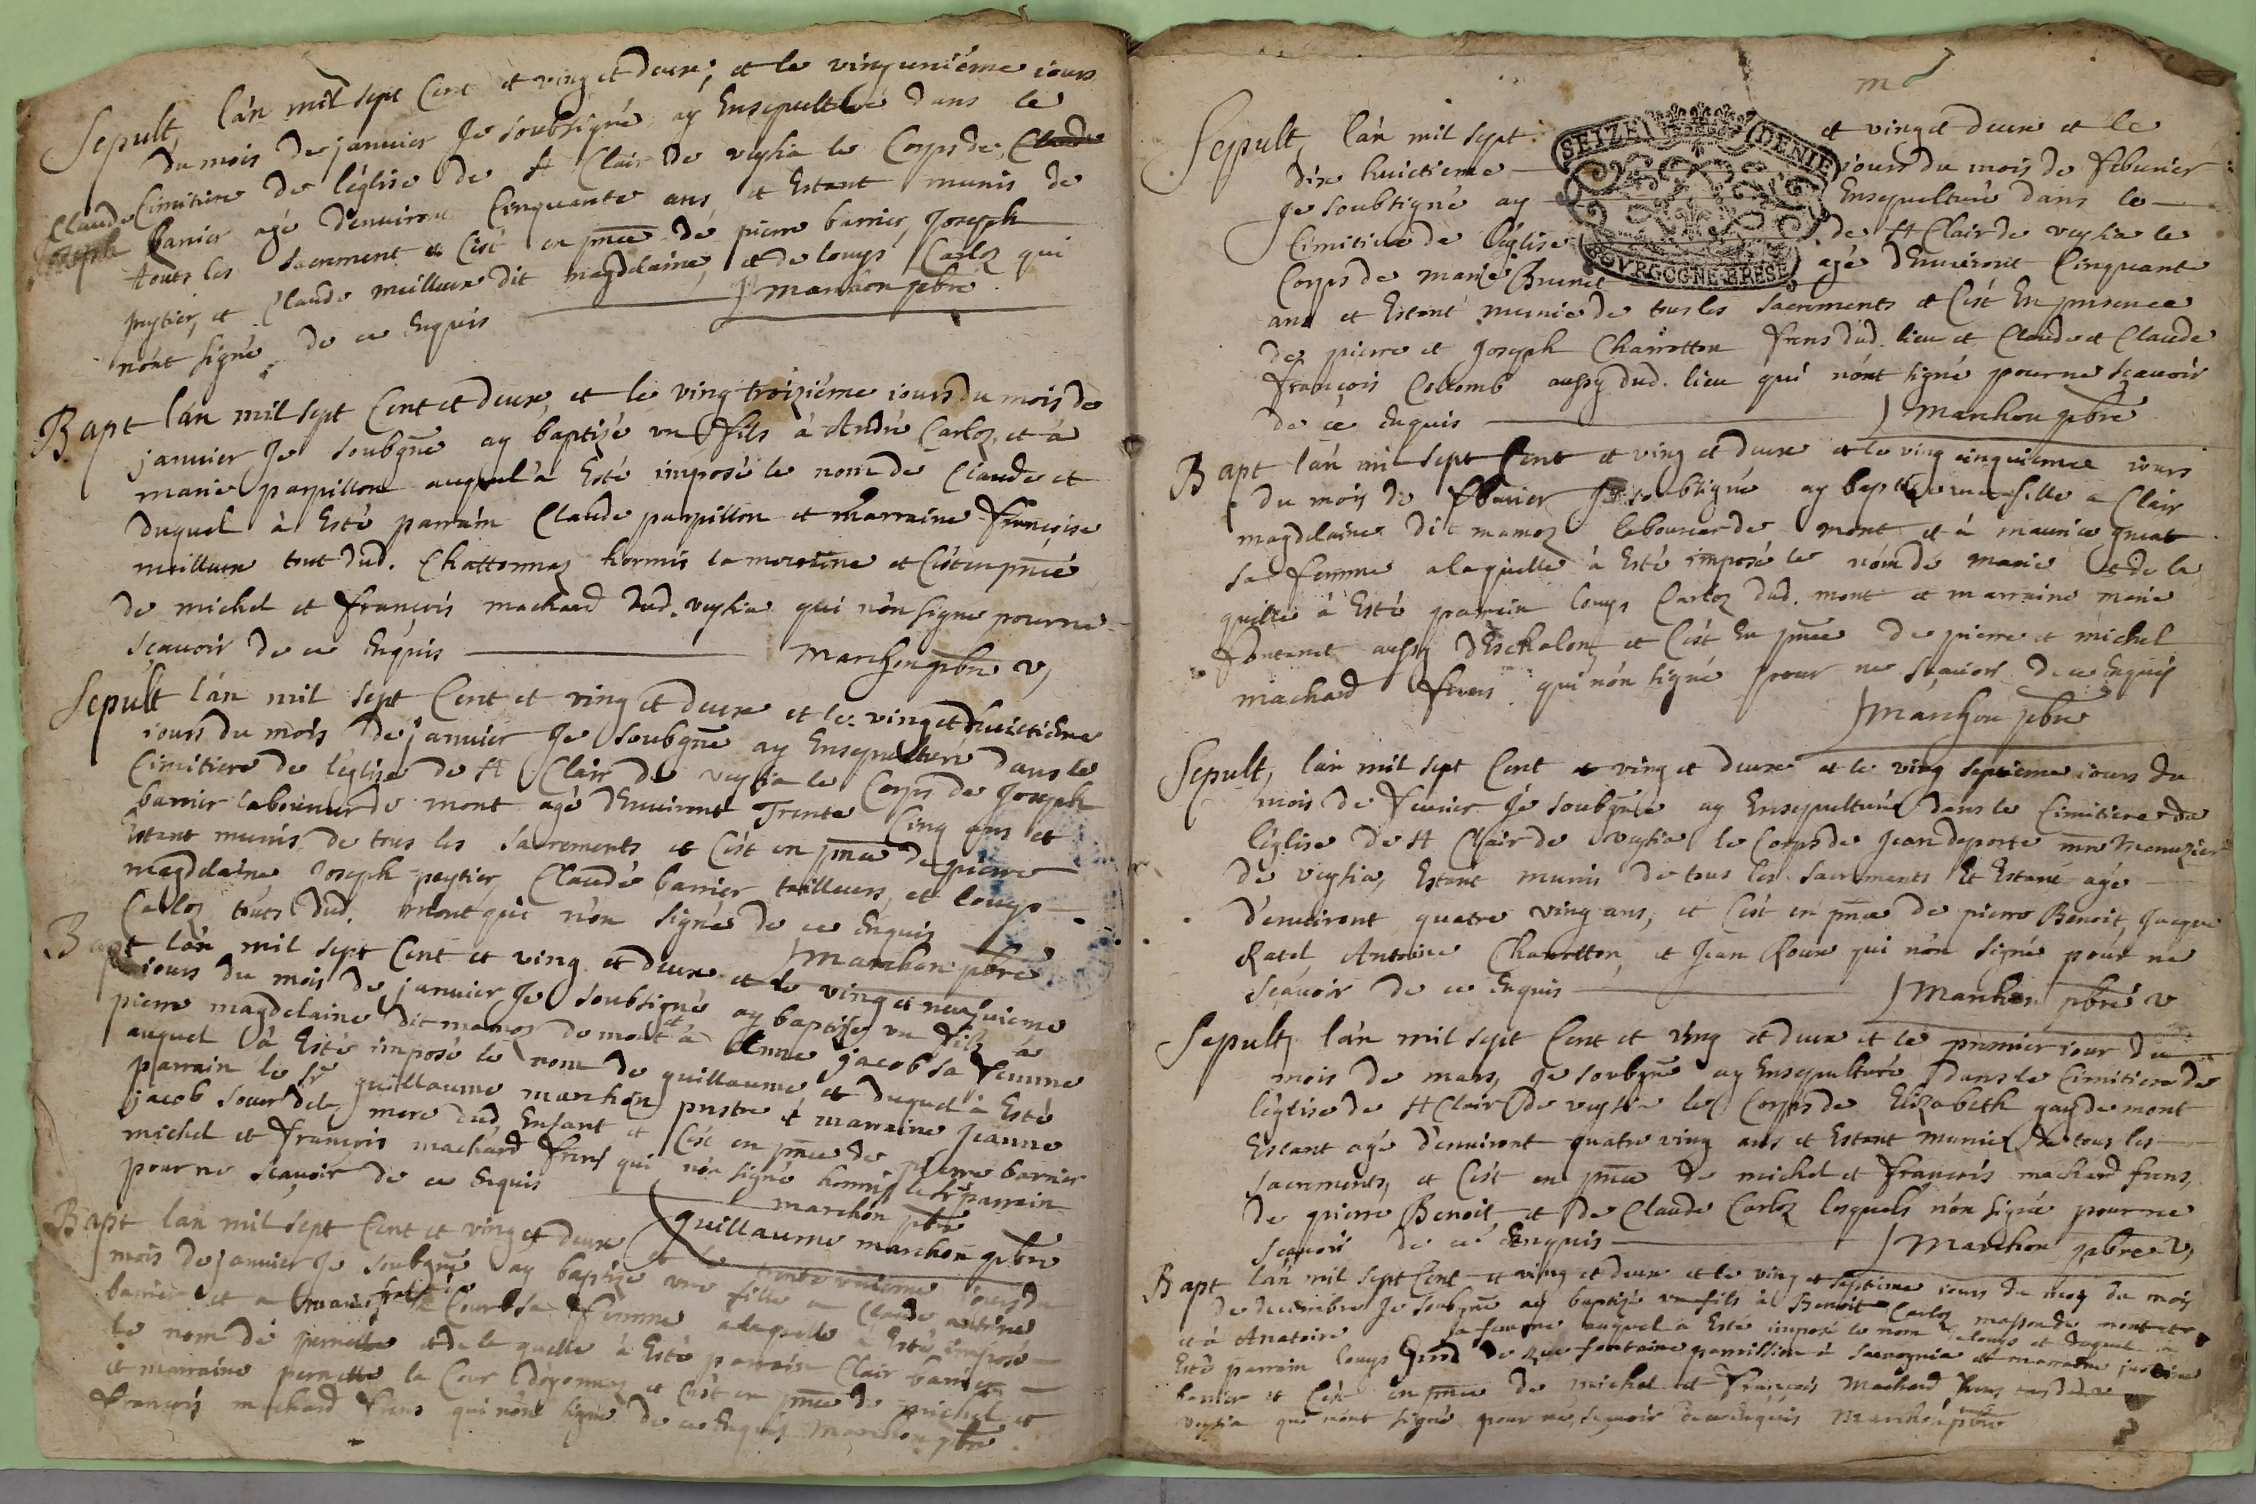 Sepult, lán mil sept Cent et ving et deux, et le vingunième iours
du mois de janvier Je soubsigné ay Ensepulturé dans le
Cimitiere de léglise de St Clair de veyzia le Corps de, Claude
Claude Joseph
barrier agé denviron Cinquante ans, et Estant munis de
touts les sacrement et C'ést en pnce de pierre barrier, Joseph
peytier, et Claude meilleur dit magdelaine, et de louys Carloz qui
nónt signé de ce Enquis
J marchon pbre
Bapt lán mil sept Cent et deux, et le ving troizième iours du mois de
janvier Je soubgné ay baptizé un fils à André Carloz, et à
marie parpillon auquel à Esté imposé le nom de Claude et
duquel à Esté parrain Claude parpillon et marraine françoise
meilleur tout dud. Chattonnaz hormis la marraine et C'ést en pnce
de michel et françois machard dud. veyzia qui nón signe pour ne
scavoir de ce Enquis
marchon pbre v,
Sepult lán mil sept Cent et ving et deux et le ving et huictième
iours du mois de janvier Je soubgné ay Ensepulturé dans le
Cimitiere de léglise de St Clair de veyzia le Corps de Joseph
barrier laboureur de mont agé dEnviront Trente Cinq ans et
Estant munis de tous les sacrements et C'ést en pnce de pierre
magdelaine Joseph peytier, Claude barrier tailleurs, et louys
Carloz touts dud. mont qui nón signé de ce Enquis
J marchon pbre
Bapt lán mil sept Cent et ving et deux et le ving et neuvieme
iours du mois de janvier Je soubsigné ay baptisé un fils à
pierre magdelaine dit mamoz de mont et à Anne jacob sa femme
auquel à Esté imposé le nom de guillaume et duquel à Esté
parrain le sr guillaume marchon prestre et marraine Jeanne
jacob soeur de la mere dud. Enfant et C'ést en pnce de pierre barrier
michel et françois machard freres qui nón signé hormis le sr parrain
pour ne scavoir de ce Enquis
marchon pbre
guillaume marchon pbre
Bapt lán mil sept Cent et ving et deux et le trente unieme iours du
mois de janvier Je soubgné ay baptizé une fille a Claude antoine
barrier et a marie la Cour sa femme a laquelle à Esté imposé
le nom de pernette et de la quelle à Esté parrain Clair barrier
et marraine pernette la Cour dóyonnaz et C'ést en pnce de michel et
françois machard freres qui nónt signé de ce Enquis marchon pbre
Sepult, lán mil sept et ving et deux et le
dix huictieme iours du mois de febvrier
Je soubsigné ay Ensepulturé dans le
Cimitiere de léglise de St Clair de veyzia le
Corps de marie Brunet agé dEnviront Cinquante
ans et Estant munie de tous les sacrements et C'ést En presence
de pierre et Joseph Charrotton freres dud. lieu et Claude et Claude
françois Colomb aussy dud. lieu qui nónt signé pour ne scavoir
de ce Enquis
J marchon pbre
SEIZE DENIE
BOVRGOGNE BRESE
Bapt lán mil sept Cent et ving et deux et le ving cinquieme iours
du mois de fbvrier Je soubsigné ay baptizé une fille a Clair
magdelaine dit mamoz laboureur de mont et à maurice
sa femme a laquelle à Esté imposé le nóm de marie et de la
quelle à Esté parrain louys Carloz dud. mont et marraine marie
fontanet aussy dEschalon et C'ést En pnce de pierre et michel
machard freres qui nón signé pour ne scavoir de ce Enquis
J marchon pbre
Sepult, lán mil sept Cent et ving et deux et le ving septieme iours du
mois de fevrier Je soubgné ay Ensepulturé dans le Cimitiere de
léglise de St Clair de veyzia le Corps de Jean deporte mre Menuzier
de veyzia, Estant munis de tous les sacrements Et Estant agé
d'environt quatre ving ans, et C'ést en pnce de pierre Benoit, Jacque
Ratel Antoine Charotton, et Jean Roux qui nón signé pour ne
scavoir de ce Enquis
J Marchon pbre v
Sepult, lán mil sept Cent et ving et deux et le premier iour du
mois de mars, Je soubgné ay Ensepulturé dans le Cimitiere de
léglise de St Clair de veyzia le Corps de Elizabeth gay de mont
Estant agé d'environt quatre ving ans et Estant muniee de tous les
sacrements, et C'ést en pnce de michel et françois machard freres,
de pierre Benoit, et de Claude Carloz lesquels nón signé pour ne
scavoir de ce Enquis
J Marchon pbre v,
Bapt lán mil sept Cent et ving et deux et le ving et septieme iours du moy du mois
de decembre Je soubgné ay baptizé un fils à Benoit Carloz masson de mont et
et à Anatoire sa femme auquel a Esté imposé le nom de louys et duquel a
Esté parrain louys de fontaine parroissien à et marraine
barrier et C'ést en pnce de michel et françois Machard freres
veyzia qui nónt signé pour ne scavoir de ce Enquis Marchon pbre